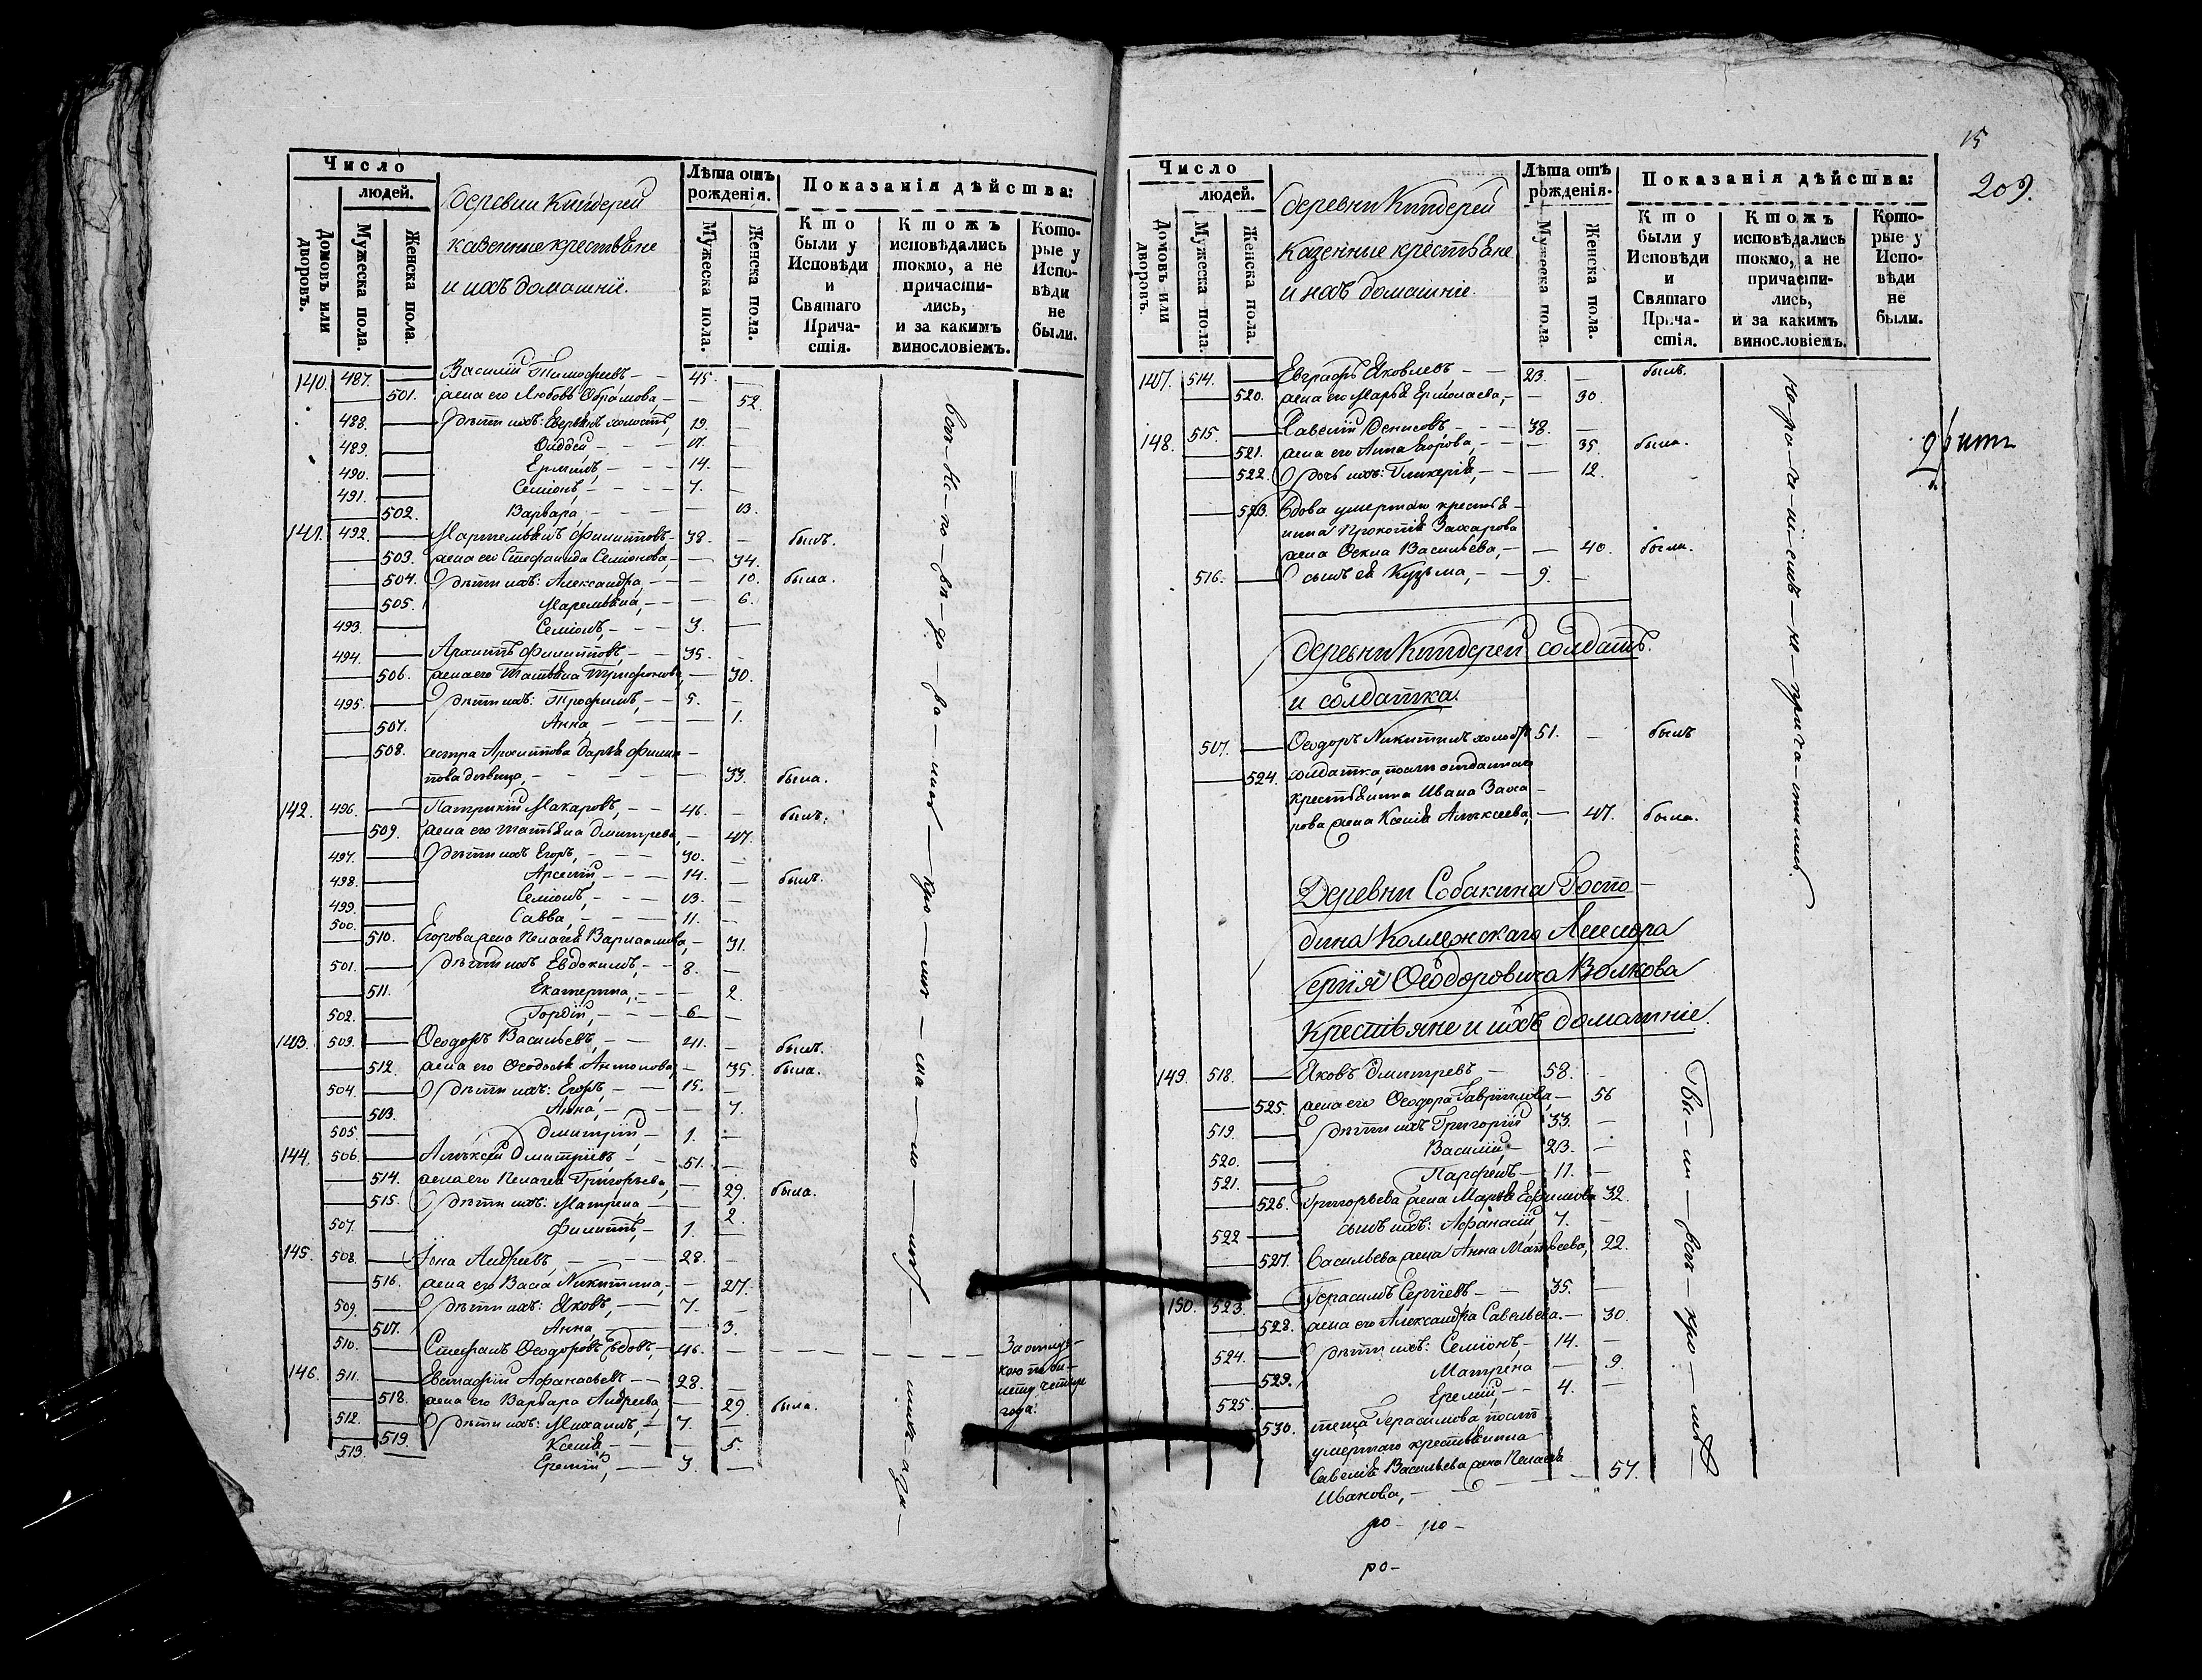 Число
людей.
Домовъ или дворовъ.
Мужеска пола.
Женска пола.
деревни Киндерей
казенные крестьяне
и ихъ домашніе.
Лѣта отъ рожденія.
Мужеска пола.
Женска пола.
Показанія дѣйства:
Кто были у Исповѣди и Святаго Прича- стія.
Ктожъ исповѣдались токмо, а не причасти- лись, и за какимъ винословіемъ.
Кото- рые у Испо- вѣди не были.
140. 487. — Василій Тимофеевъ — — 45. —
— 501. жена его Любовь Обрамова, — — 52.
488. — дѣти ихъ: холостъ, 19. —
489. — Фаддей — — 17. —
490. — Ермилъ, — — 14. —
491. — Семіонъ, — — 7. —
— 502. Варвара, — — — 13.
141. 492. — Филипповъ — 38. — былъ.
— 503. жена его Стефанида Семіонова, — — 34.
— 504. дѣти ихъ: Александра, — — 10. была.
— 505. — — 6.
493. — Семіонъ, — — 3. —
494. — Архиппъ Филипповъ, — — 35. —
— 506. жена его Татьяна Трифонова, — 30.
495. — дѣти ихъ: Трофимъ, — 5. —
— 507. Анна — — — 1.
— 508. сестра Архиппова Дарья Филип-
пова девица, — — — — 33. была.
142. 496. — Патрикій Макаровъ, — — 46. — былъ.
— 509. жена его Татьяна Дмитрева, — 47.
497. — дѣти ихъ Егоръ, — — — 30. —
498. — Арсеній, — — — 14. — былъ.
499. — Семіонъ, — — — 13. —
500. — Савва, — — — 11. —
— 510. Егорова жена Пелагея Варлаамова, — 31.
501. — дѣти ихъ Евдокимъ, — — 8. —
— 511. Екатерина, — — 2.
502. — Гордій, — — — 6 —
143. 503. — Ѳеодоръ Васильевъ, — — 41. — былъ.
— 512. жена его Ѳеодосья Антонова, — 35. была.
504. — дѣти ихъ: Егоръ, — — 15. —
— 513. Анна, — — — 7.
505. — Дмитрій, — 1. —
144. 506. — Алексѣй Дмитріевъ — — 51. —
— 514. жена его Пелагея Григорьева, — 29. была.
— 515. дѣти ихъ: Матрена, — — 2.
507. — Филиппъ, — 1. —
145. 508. — Іона Андреевъ, — — — 28. —
— 516. жена его Васса Никитина, — — 27.
509. — дѣти ихъ: Яковъ, — — 7. —
— 517. Анна — — — 3.
510. — Стефанъ Ѳеодоровъ вдовъ, — 46. — — — — — —
146. 511. — Афанасьевъ — — 28. —
— 518. жена его Варвара Андреева, — 29. была.
512. — дѣти ихъ: Михаилъ, — 7. —
— 519. Ксенія, — — — 5.
513. — Еремій, — — 3. —
15
209.
Число
людей.
Домовъ или дворовъ.
Мужеска пола.
Женска пола.
деревни Киндерей
казенные крестьяне
и ихъ домашніе.
Лѣта отъ рожденія.
Мужеска пола.
Женска пола.
Показанія дѣйства:
Кто были у Исповѣди и Святаго Прича- стія.
Ктожъ исповѣдались токмо, а не причасти- лись, и за какимъ винословіемъ.
Кото- рые у Испо- вѣди не были.
147. 514. — Евграфъ Яковлевъ — — 23. — былъ.
— 520. жена его Марья Ермолаева, — — 30.
148. 515. — Савелій Денисовъ — — 38. —
— 521. жена его Анна Егорова, — — 35. была.
— 522. дочь ихъ: Гликерія, — — 12.
— 523. Вдова умершаго крестья-
нина Прокопія Захарова
жена Ѳекла Васильева, — — 40. была.
516. — сынъ ея Кузьма, — — 9. —
деревни Киндерей солдатъ
и солдатка.
517. — Ѳеодоръ Никитинъ 51. — былъ
— 524. солдатка,
крестьянина Ивана Заха-
рова жена Ксенія Алексеева, — 47. была.
Деревни Собакина Госпо-
дина Коллежскаго Асессора
Сергія Ѳеодоровича Волкова
Крестьяне и ихъ домашніе.
149. 518. — Яковъ Дмитревъ — 58. —
— 525. жена его Ѳеодора Гавріилова, — 56
519. — дѣти ихъ Григорій 33. —
520. — Василій, — 23. —
521. — Парфенъ — 11. —
— 526. Григорьева жена Марья Ефимова 32.
522 — сынъ ихъ: Афанасій 7. —
— 527. Васильева жена Анна Матвеева, 22.
150. 523. — Герасимъ Сергіевъ — — 35. —
— 528. жена его Александра Савельева. — 30.
524. — дѣти ихъ: Семіонъ, — 14. —
— 529. Матрена — 9.
525. — Еремій, — — 4. —
— 530. теща Герасимова,
умершаго крестьянина
Савелія Васильева жена Пелагея
Иванова, — — — 57.
ро- ро-
ро-